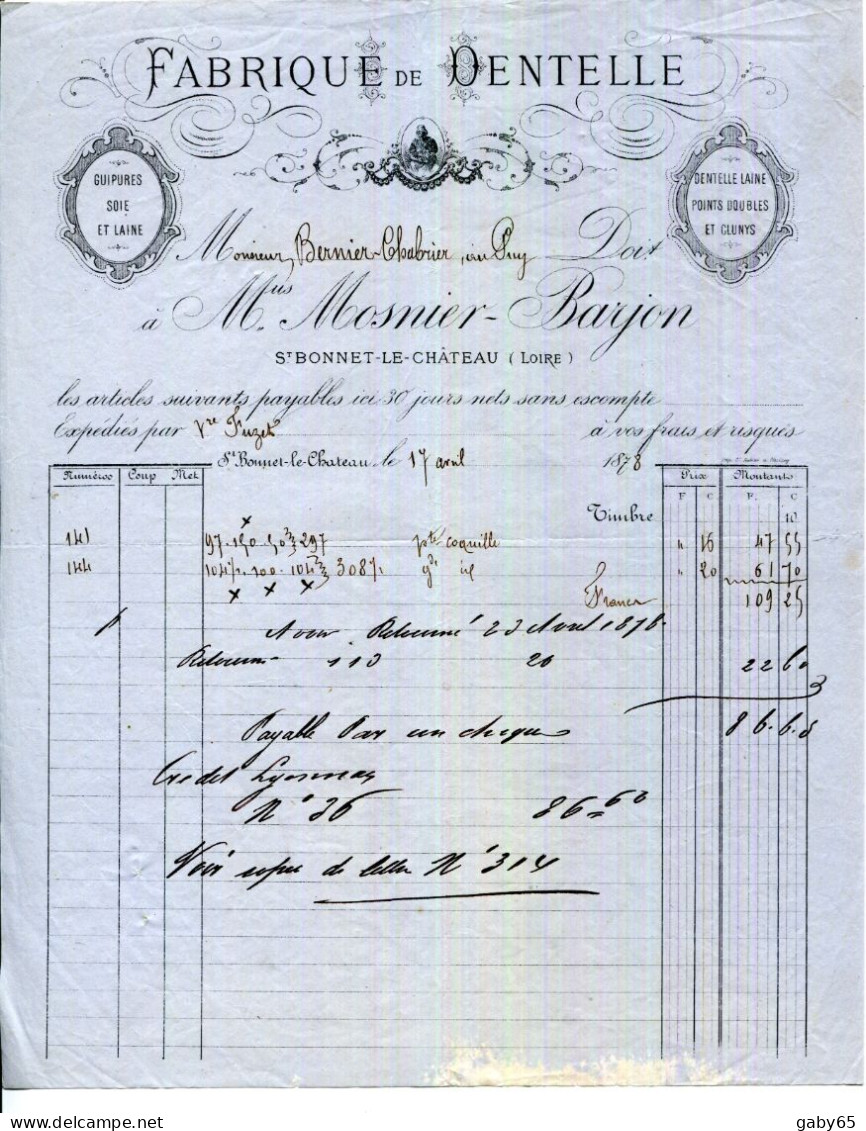 FABRIQUE DE DENTELLE
GUIPURES
SOIE
ET LAINE
DENTELLE LAINE
POINTS DOUBLES
ET CLUNYS
Monsieur Bernier-Chabrier, au Puy Doit
à Mus Mosnier-Barjon
ST BONNET-LE-CHÂTEAU (LOIRE)
les articles suivants payables ici 30 jours nets sans escompte
Expédiés par Vre Fuzet à vos frais et risques
St Bonnet-le-Chateau, le 17 avril 1878
Numéros Coup Met Prix Montants
F C F. C
Timbre 10
141 97. 150. 50 297 pte coquille " 16 47 55
144 104 100. 104 308 gde " 20 61 70
Francs 109 25
Retourné 23 Avril 1878.
113 20 22 60
86. 6.5
Payable Par un cheque
Credit Lyonnais
N° 36 86 = 60
Voir copie de lettre N° 314
gaby65